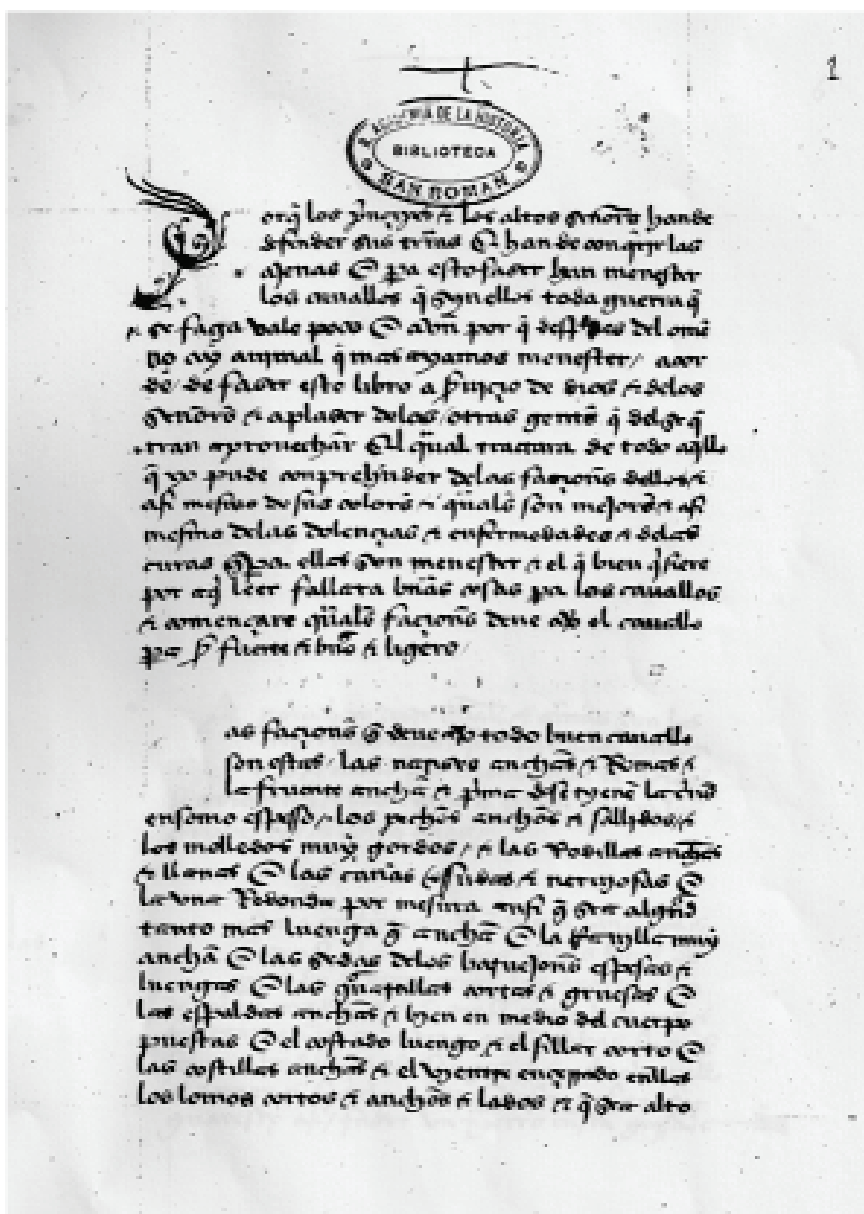 1
R. ACADEMIA DE LA HISTORIA
BIBLIOTECA
SAN ROMAN
orq̄ los p̄nçipes ⁊ los altos señors̄ han de
defender sus trr̄as E han de conq̄rir las
ajenas E pa esto faser han menester
los cauallos q̄ syn ellos toda guerra q̄
se faga vale poco E avn por q̄ despues del ome
no ay animal q̄ mas ayamos menester / acor
de de faser este libro a de dios ⁊ delos
señors̄ ⁊ a plaser delos otras gents̄ q̄ del se q̄
rran aprouechar El qual tractara de todo aq̄llo
q̄ yo pude conprehender delas façions̄ dellos ⁊
asi mesmo de sus colors̄ ⁊ quals̄ son mejors̄ ⁊ asi
mesmo delas dolençias ⁊ enfermedades ⁊ delas
curas q̄ pa ellas son menester ⁊ el q̄ bien q̄siere
por aq̄ leer fallara bn̄as cosas pa los cauallos
⁊ començare quals̄ façions̄ deue el cauallo
pa fuerte ⁊ bn̄o ⁊ ligero
as façions̄ q̄ deue todo buen cauallo
son estas / las narizes anchas ⁊ Romas ⁊
la fruente ancha ⁊
ensomo espeso / los pechos anchos ⁊ sallidos ⁊
los molledos muy gordos / ⁊ las Rodillas anchas
⁊ llanas E las cañas ⁊ neruiosas E
la vna Redonda por mesura ansi q̄ sea algund
tanto mas luenga q̄ ancha E la muy
ancha E las sedas delos espesas ⁊
luengas E las quartillas cortas ⁊ gruesas E
las espaldas anchas ⁊ bien en medio del cuerpo
puestas E el costado luengo ⁊ el sillar corto E
las costillas anchas ⁊ el vientre
los lomos cortos ⁊ anchos ⁊ ⁊ q̄ sea alto